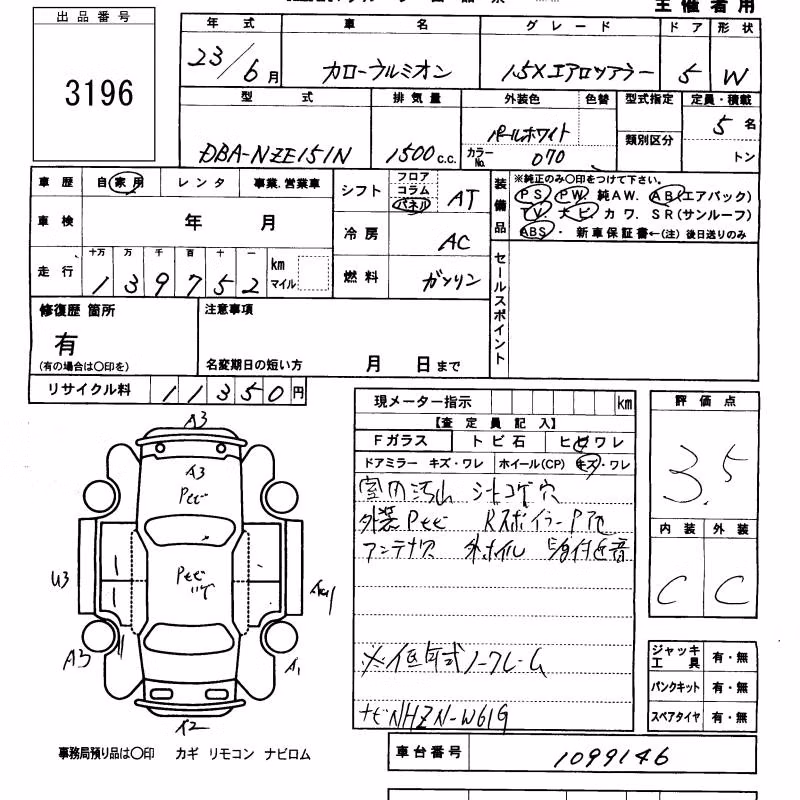 主催者用
出品番号
3196
年式 車名 グレード ドア 形状
23/6月 カローラルミオン 1.5Xエアロツアラー 5 W
型式 排気量 外装色 色替 型式指定 定員・積載
DBA-NZE151N 1500c.c. パールホワイト 5名
カラーNo. 070 類別区分 トン
車歴 自家用 レンタ 事業.営業車
シフト フロア コラム パネル AT
装備品 ※純正のみ○印をつけて下さい。
PS PW. 純AW. AB(エアバック)
TV. ナビ カワ. SR(サンルーフ)
ABS・ 新車保証書←(注)後日送りのみ
車検 年 月
冷房 AC
走行 十万 万 千 百 十 一 km マイル
139752
燃料 ガソリン
セールスポイント
修復歴 箇所
有
(有の場合は○印を)
注意事項
名変期日の短い方 月 日まで
リサイクル料 11350円
現メーター指示 km
【査定員記入】
Fガラス トビ石 ヒビワレ
ドアミラー キズ・ワレ ホイール(CP) キズ・ワレ
室内汚れ シートコゲ穴
外装Pセビ Rスポイラー
アンテナ欠 外ホイル
ノークレーム
ナビNHZN-W61G
評価点
3.5
内装 外装
C C
ジャッキ工具 有・無
パンクキット 有・無
スペアタイヤ 有・無
A3
A3
U3
A3
A1
事務局預り品は○印 カギ リモコン ナビロム
車台番号 1099146